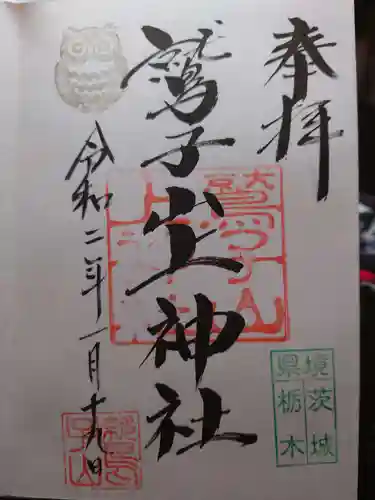 奉拝
鷲子山上神社
令和二年一月十九日
境茨城
県栃木
鷲子山
上神社